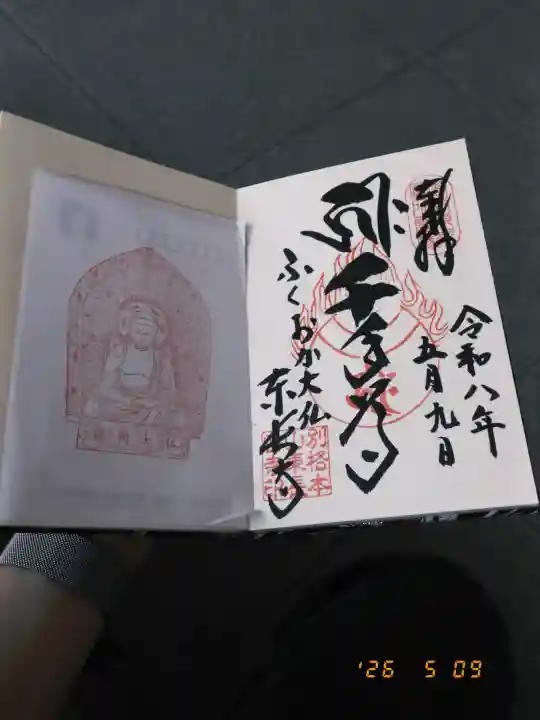 奉拝
令和八年
五月九日
千手尊
ふくおか大仏
東長寺
別格本
山東長
寺印
福岡大仏
'26 5 09